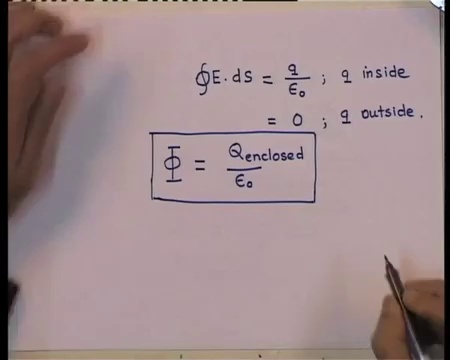 ∮E.dS = q/ε₀ ; q inside
= 0 ; q outside.
Φ = Qenclosed/ε₀